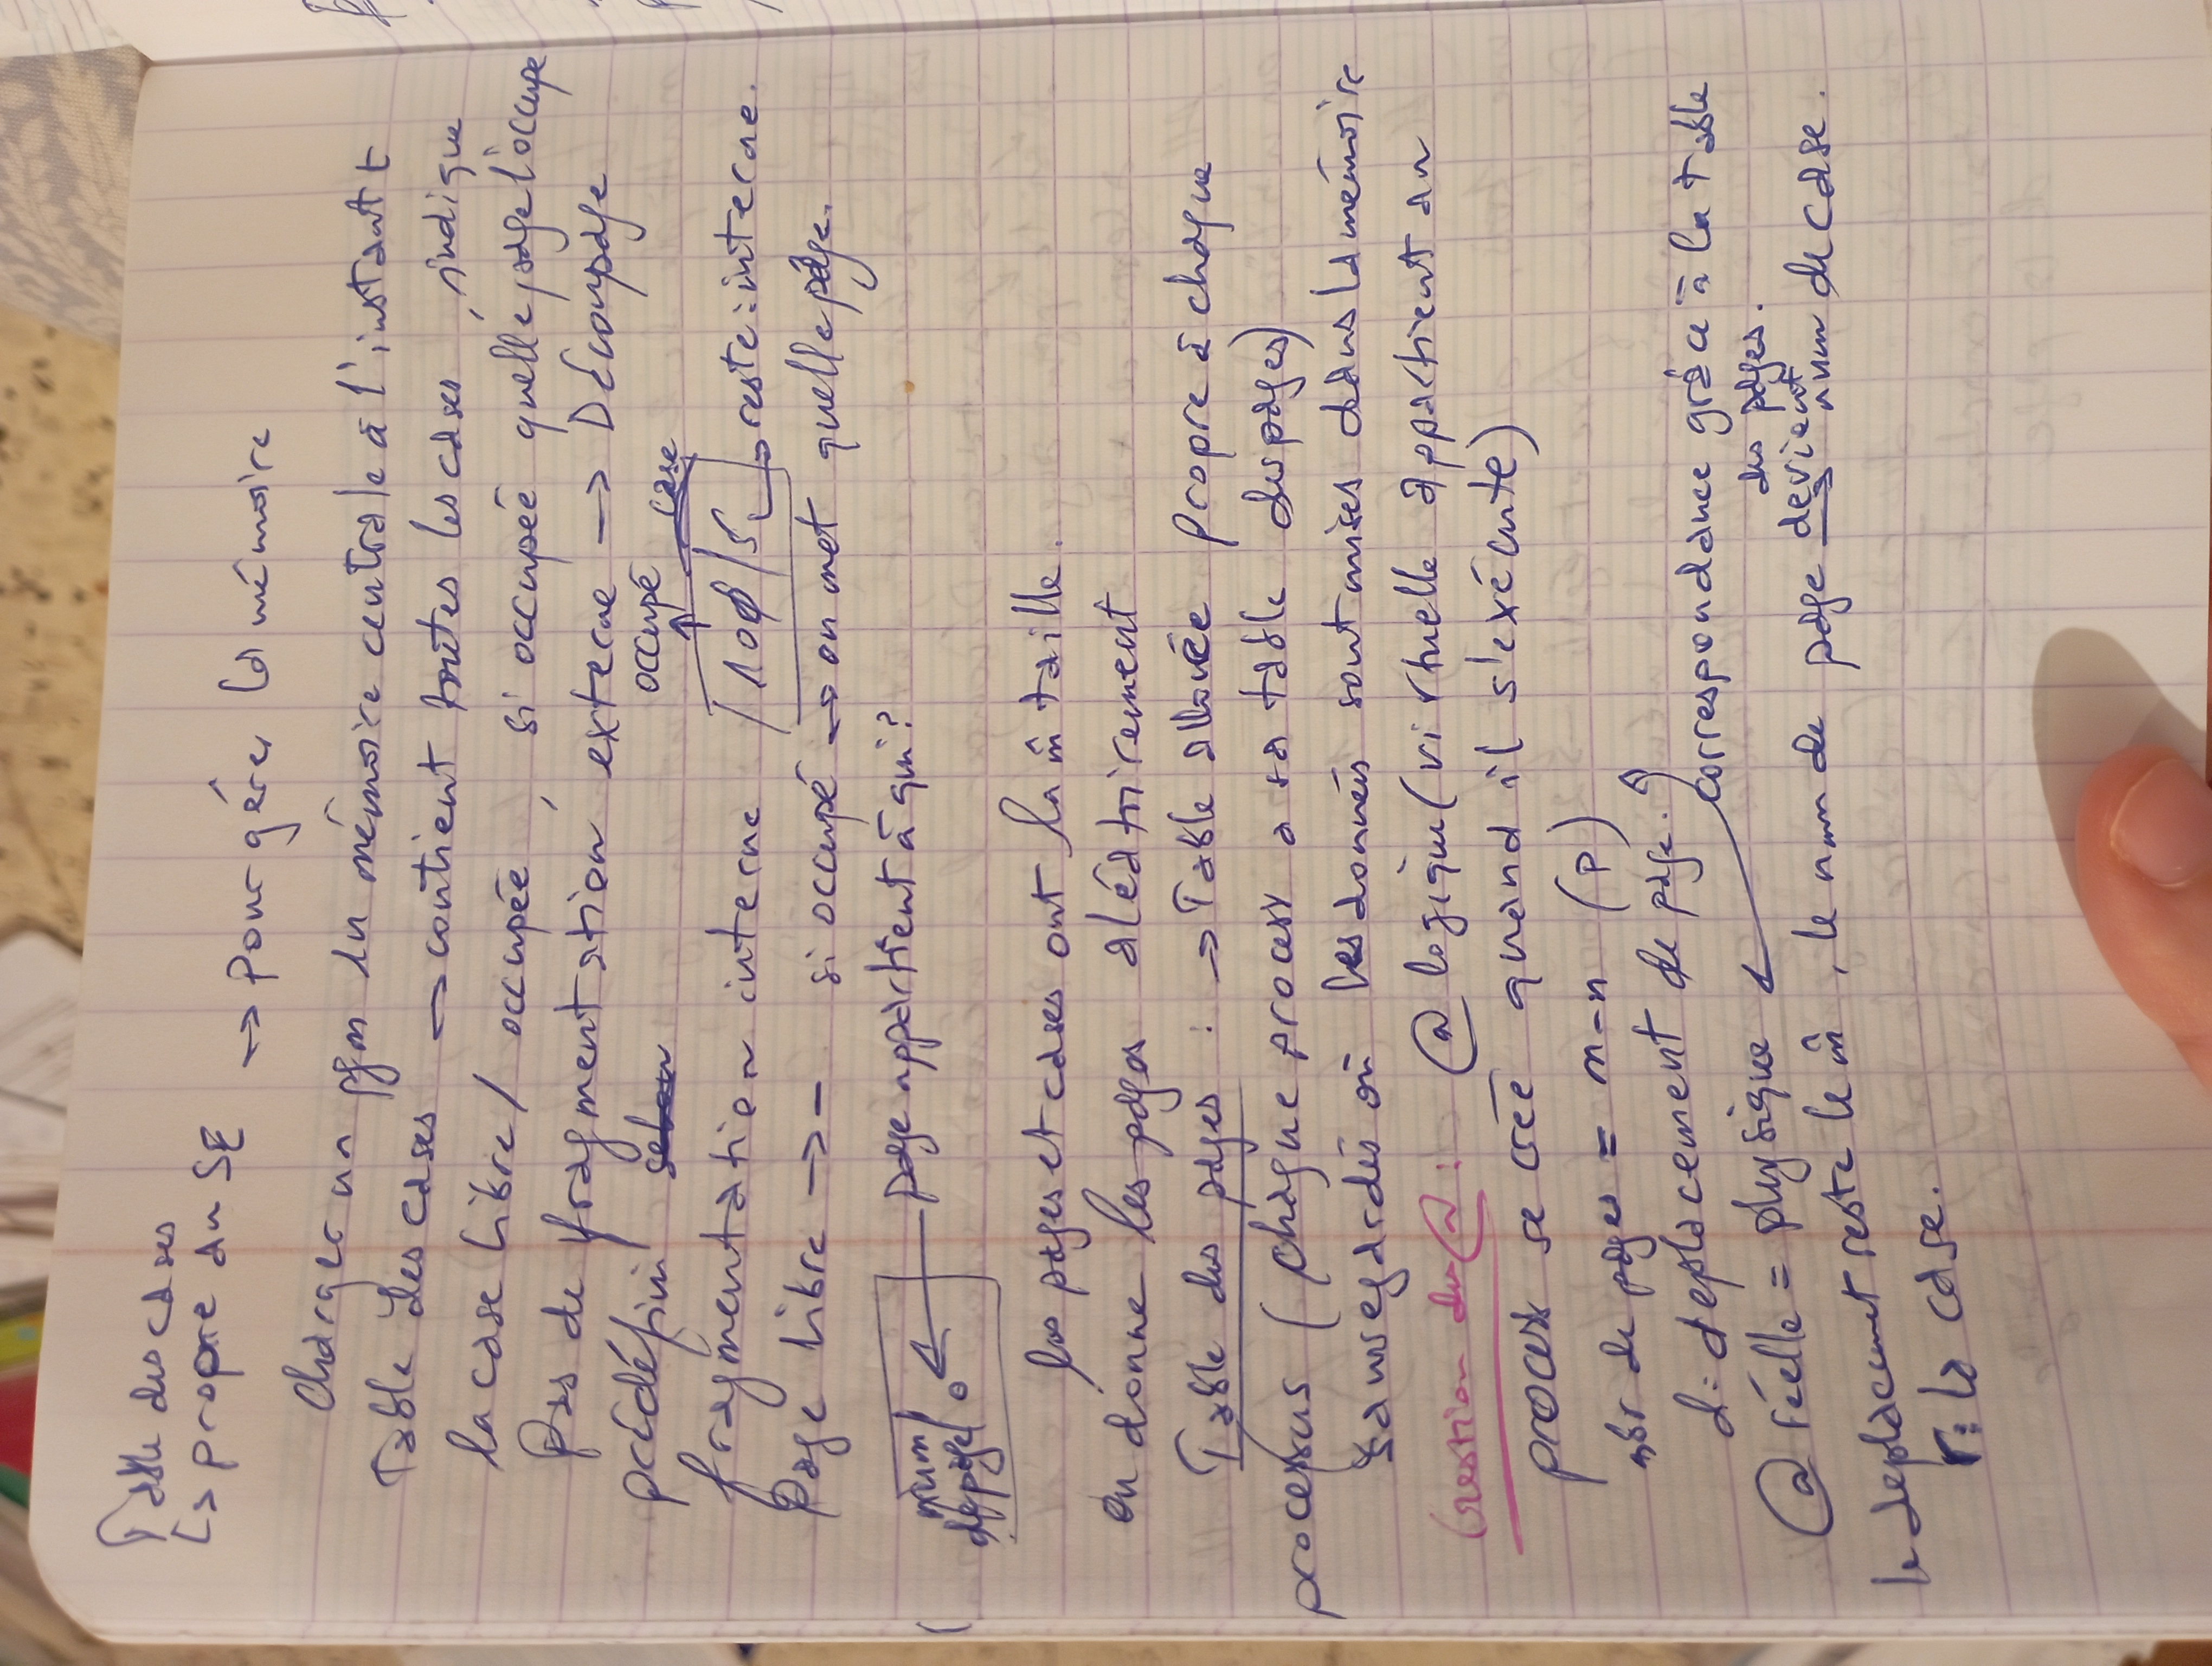 Table des cases
↳ propre au SE → pour gérer la mémoire
charger un pgm en mémoire centrale à l'instant t
Table des cases → contient toutes les cases, indique
la case libre / occupée, si occupée quelle page l'occupe
Pas de fragmentation externe → Découpage
prédéfini
occupé
case
fragmentation interne / 100/5 → reste interne.
Page libre → - si occupé → on met quelle page.
num de page | 0 ← page appartient à qui?
les pages et cases ont la m̂ taille.
on donne les pages aléatoirement
Table des pages : → Table allouée propre à chaque
processus (chaque process a sa table des pages)
sauvegardés où les données sont mises dans la mémoire
Gestion des @ : @ logique (virtuelle appartient au
process se crée quand il s'exécute)
nbr de pages = m-n (p)
d: déplacement de page.
correspondance grâce à la table
des pages.
@ réelle = physique
le déplacement reste le m̂, le num de page devient num de case.
r: la case.